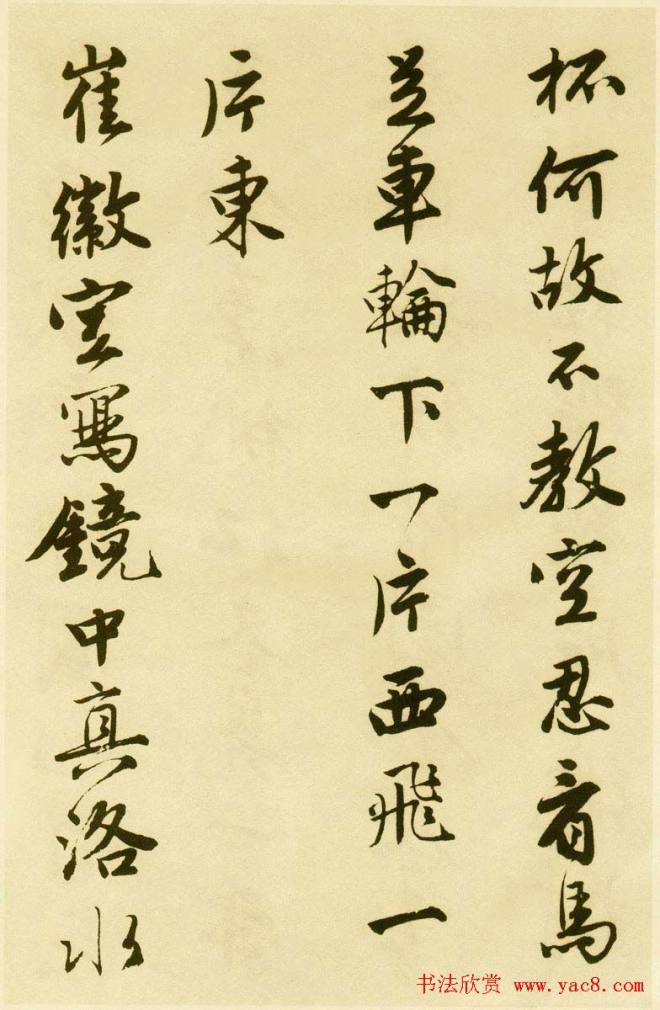 杯何故不教空忍看馬
足車輪下一片西飛一
片東
崔徽空寫鏡中真洛水
书法欣赏 www.yac8.com